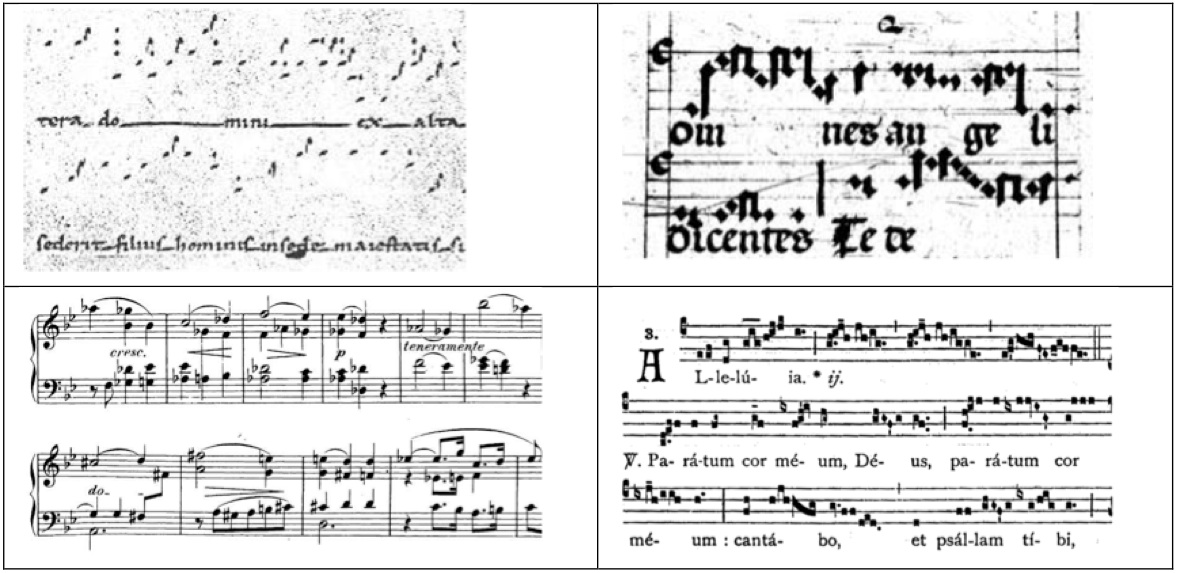 tera do mini ex alta
sederit filius hominis insede maiestatis si
om nes an ge li
dicentes Te de
cresc.
p
teneramente
do-
3.
AL-le-lú- ia. * ij.
℣. Pa- rá-tum cor mé- um, Dé- us, pa- rá-tum cor
mé- um : cantá- bo, et psál-lam tí- bi,